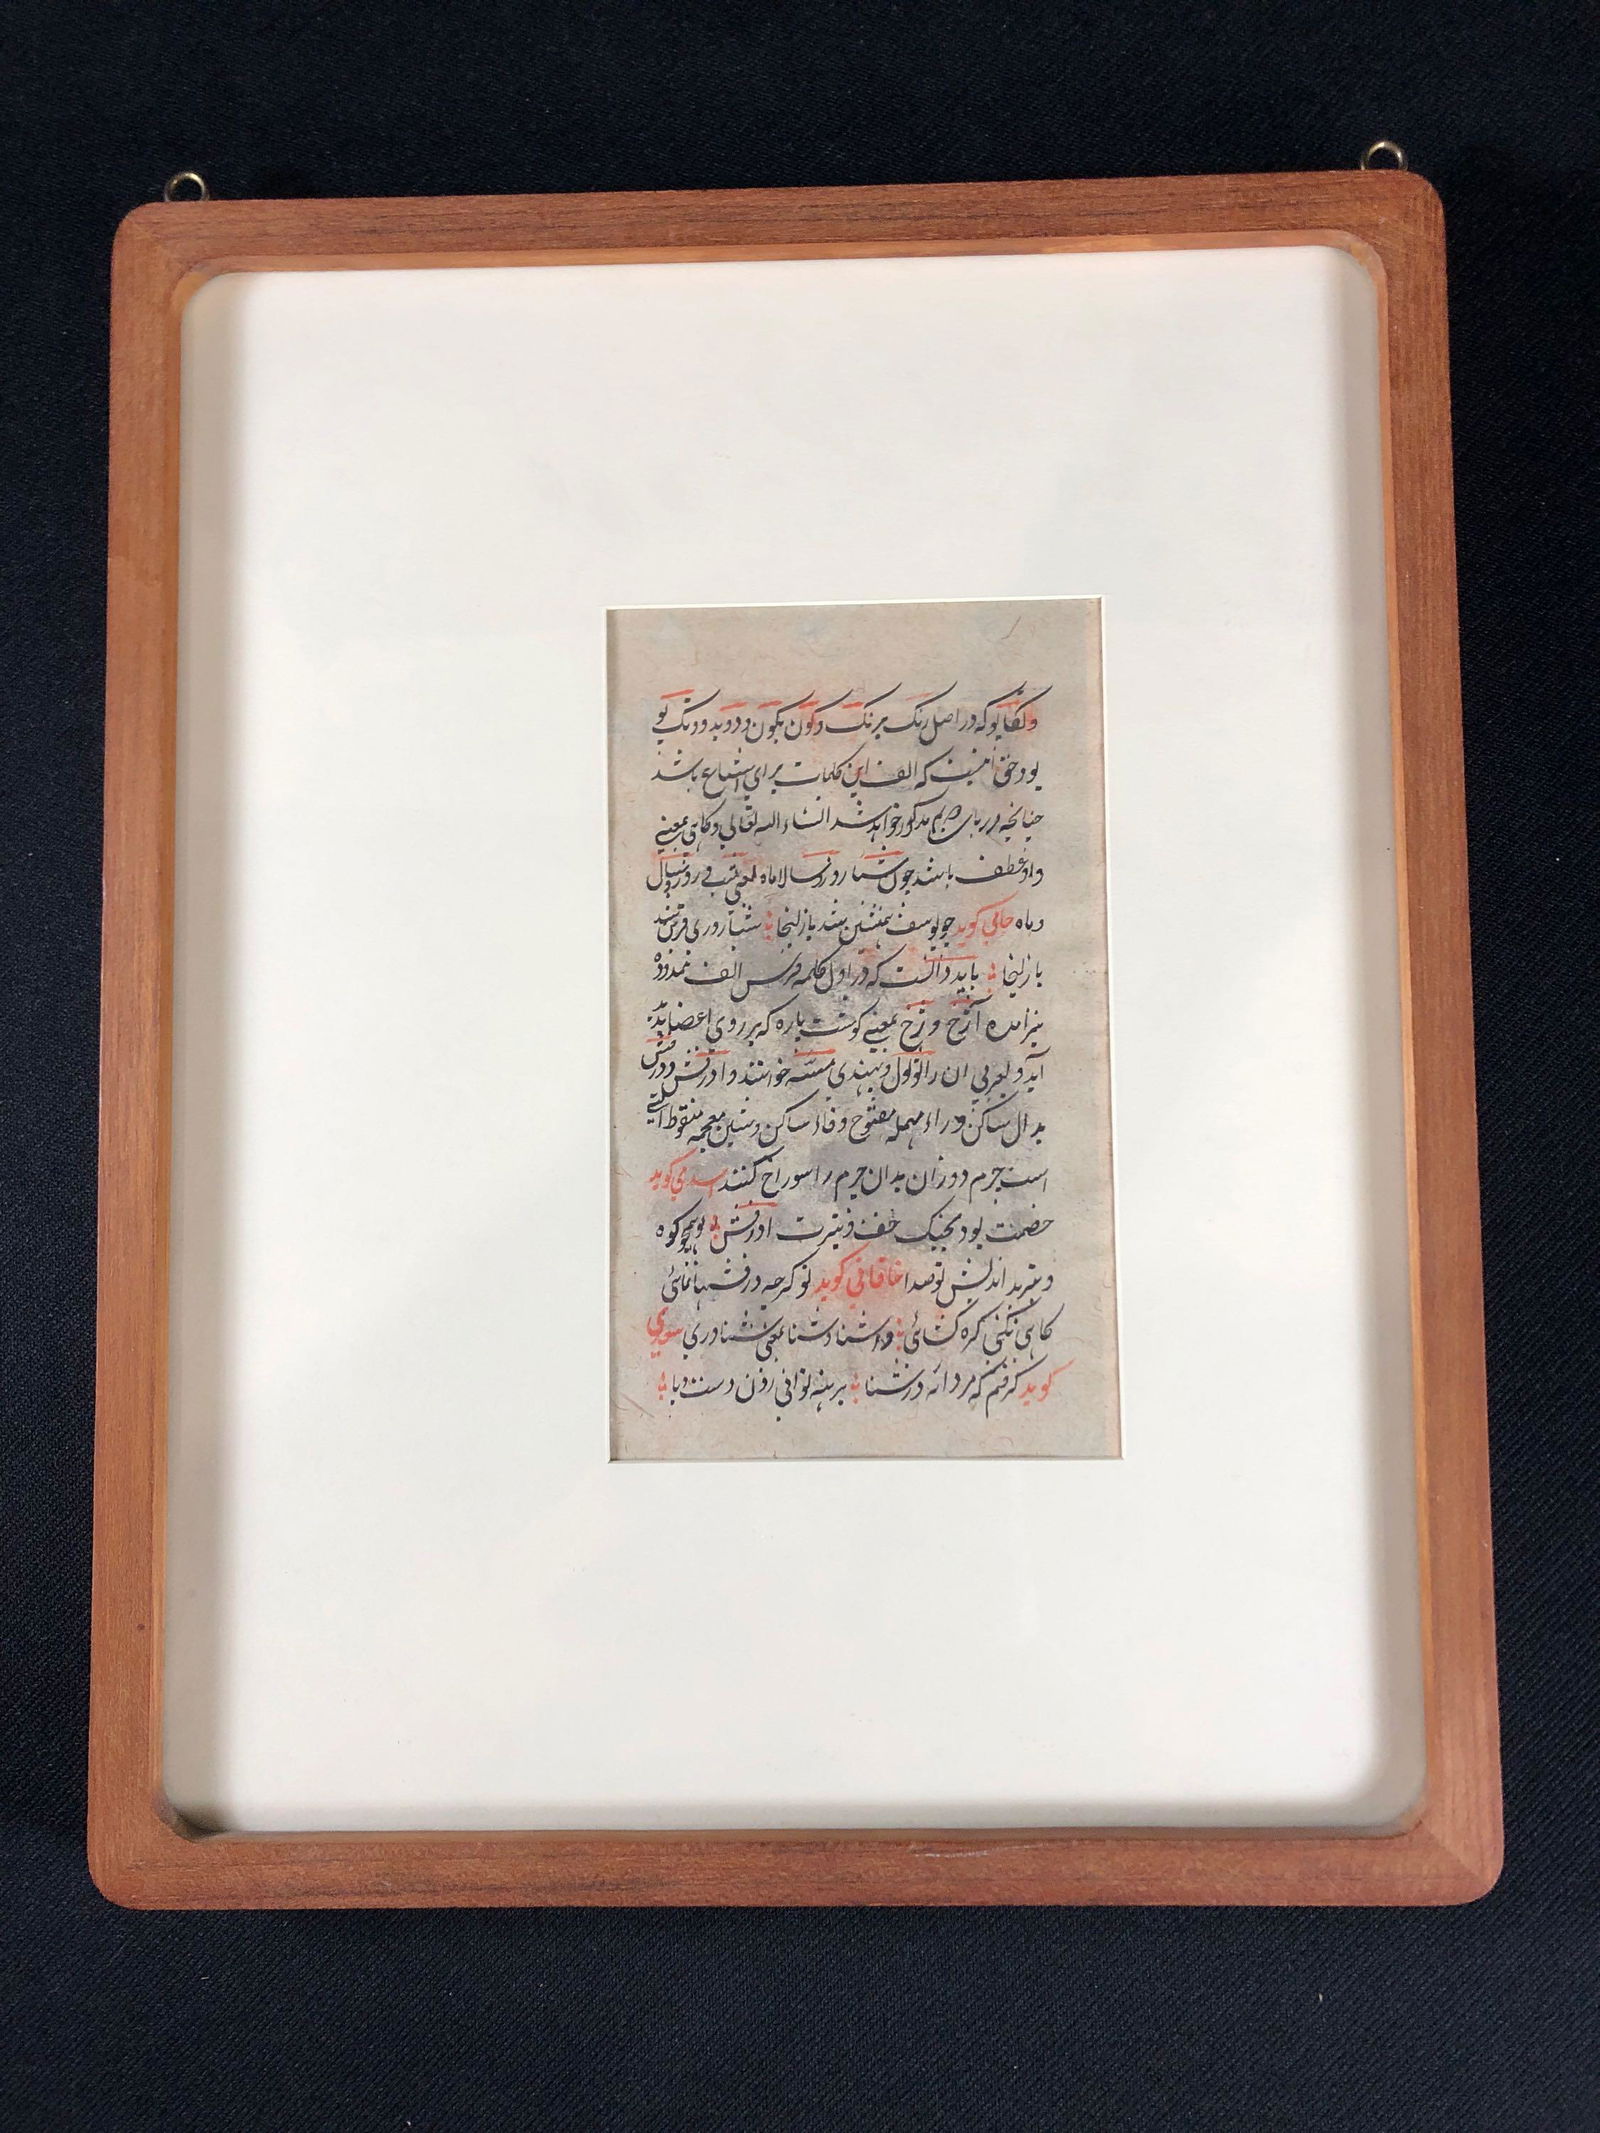 و تکاپو که در اصل رنک برنک و کون بکون و دوبدو و تک پو
بود و حق اینست که الف این کلمات برای اشباع باشد
چنانچه در باب مذکور خواهد شد انشاء الله تعالی و کاهی بمعنی
واو عطف باشد چون شبا روز و سالاماه یعنی شب و روز و سال
و ماه جامی کوید چو یوسف همنشین شد با زلیخا شبا روزی قرین شد
با زلیخا باید دانست که در اول کلمه فرس الف ممدوده
نیز آمده آزخ و زخ بمعنی کوشت پاره که بر روی اعضا پدید
آید و بعربی آن را ثولول و بهندی مسّه خوانند و ادرفش و درفش
بدال ساکن و راء مهمله مفتوح و فاء ساکن و شین معجمه منقوط آلتی
است چرم دوزان بدان چرم را سوراخ کنند اسدی کوید
خصمت بود بجنک خف و تیرت ادرفش تو همچو کوه
و تیر بداندیش تو صدا خاقانی کوید تو کرچه درفشها نمائی
کاهی نکنی کره کشائی و اشنا و شنا بمعنی شناوری سعدی
کوید کرفتم که مردانه در شنا برهنه توانی زدن دست و پا